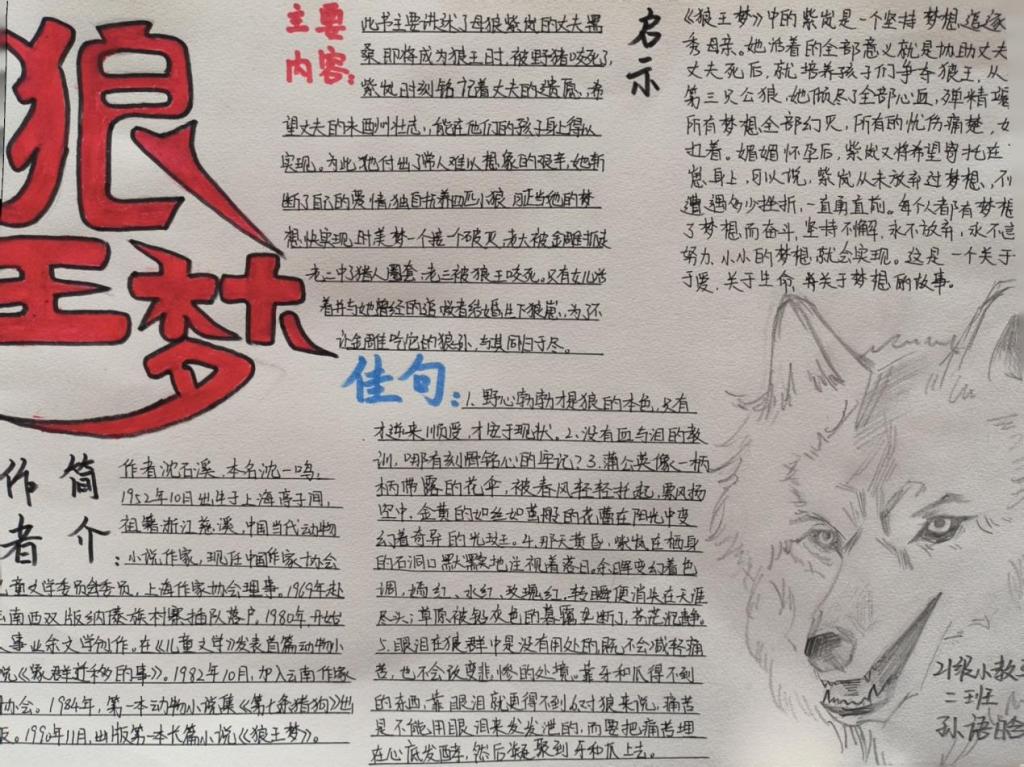 狼
王梦
主要
内容:
此书主要讲述了母狼紫岚的丈夫黑
桑即将成为狼王时,被野猪咬死了,
紫岚时刻铭记着丈夫的遗愿,希
望丈夫的未酬壮志,能在他们的孩子身上得以
实现。为此,她付出了常人难以想象的艰辛,她斩
断了自己的爱情,独自抚养四匹小狼,可正当她的梦
想快实现时,美梦一个接一个破灭,老大被金雕抓走
老二中了猎人圈套,老三被狼王咬死。又有女儿活
着并与她曾经的追求者结婚生下狼崽,为了不
让金雕吃它的狼孙,与其同归于尽。
启
示
《狼王梦》中的紫岚是一个坚持梦想,追逐
秀母亲。她活着的全部意义就是协助丈夫
丈夫死后,就培养孩子们争夺狼王,从
第三只公狼,她倾尽了全部心血,殚精竭
所有梦想全部幻灭,所有的忧伤痛楚,
也着。媚媚怀孕后,紫岚又将希望寄托在
崽身上,可以说,紫岚从未放弃过梦想,不
遭遇多少挫折,一直勇直前。每个人都有梦想
了梦想而奋斗,坚持不懈,永不放弃,永不
努力,小小的梦想,就会实现。这是一个关于
于爱,关于生命,并关于梦想的故事。
佳句:
1.野心勃勃才是狼的本色,只有
才逆来顺受,才安于现状。2.没有血与泪的教
训,哪有刻骨铭心的牢记?3.蒲公英像一柄
柄带露的花伞,被春风轻轻托起,飘风扬
空中,金黄的如丝如盖般的花蕾在阳光中变
幻着奇异的光斑。4.那天黄昏,紫岚在栖身
的石洞口默默地注视着落日。余晖变幻着色
调,橘红、水红、玫瑰红,转瞬便消失在天涯
尽头;草原被铅灰色的暮霭包断了,苍茫沉静。
5.眼泪在狼群中是没有用处的,既不会减轻痛
苦,也不会改变悲惨的处境。靠牙和爪得不到
的东西,靠眼泪就更得不到,对狼来说,痛苦
是不能用眼泪来发发泄的,而要把痛苦埋
在心底发酵,然后凝聚到牙和爪上去。
作者
简介:
作者沈石溪,本名沈一鸣,
1952年10月出生于上海亭子间,
祖籍浙江慈溪,中国当代动物
小说作家,现任中国作家协会
儿童文学委员会委员,上海作家协会理事。1969年赴
云南西双版纳傣族村寨插队落户,1980年开始
人事业余文学创作。在《儿童文学》发表首篇动物小
说《象群迁移的事》。1982年10月,加入云南作家
协会。1984年,第一本动物小说集《第七条猎狗》出
版。1990年11月,出版第一本长篇小说《狼王梦》。
21级小教
二班
孙语